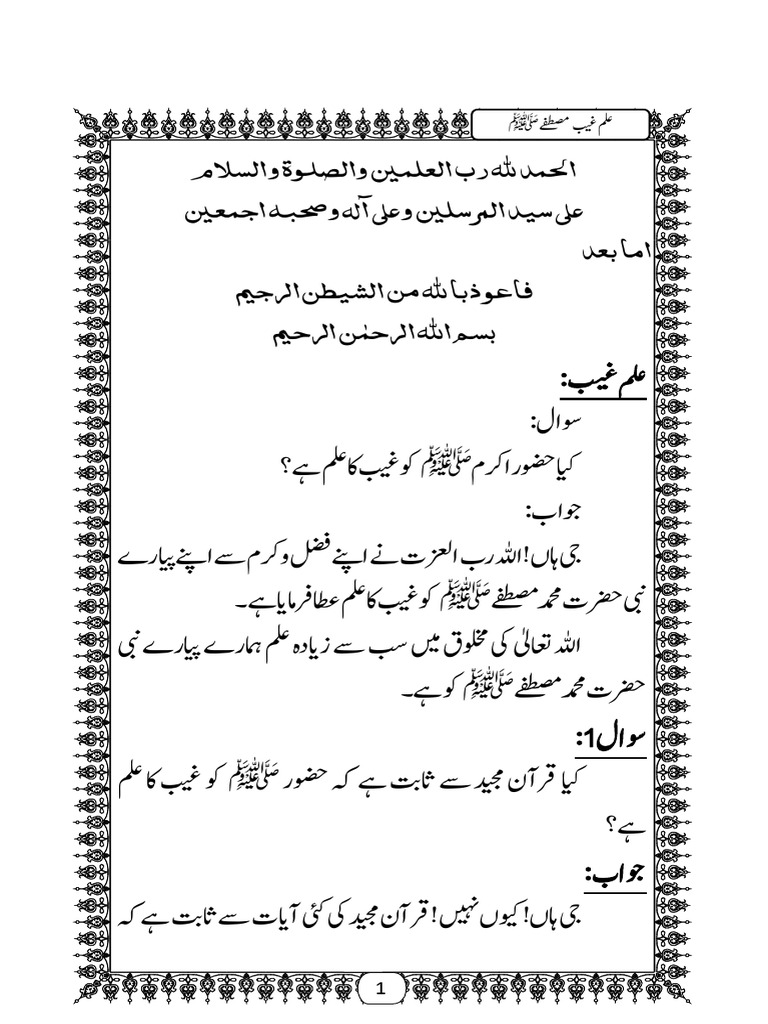 علم غیب مصطفےٰ ﷺ
الحمد للہ رب العلمین والصلوۃ والسلام
علی سید المرسلین وعلی آلہ وصحبہ اجمعین
اما بعد
فاعوذ باللہ من الشیطن الرجیم
بسم اللہ الرحمٰن الرحیم
علم غیب:
سوال:
کیا حضور اکرم ﷺ کو غیب کا علم ہے؟
جواب:
جی ہاں! اللہ رب العزت نے اپنے فضل و کرم سے اپنے پیارے
نبی حضرت محمد مصطفےٰ ﷺ کو غیب کا علم عطا فرمایا ہے۔
اللہ تعالیٰ کی مخلوق میں سب سے زیادہ علم ہمارے پیارے نبی
حضرت محمد مصطفےٰ ﷺ کو ہے۔
سوال1:
کیا قرآن مجید سے ثابت ہے کہ حضور ﷺ کو غیب کا علم
ہے؟
جواب:
جی ہاں! کیوں نہیں! قرآن مجید کی کئی آیات سے ثابت ہے کہ
1